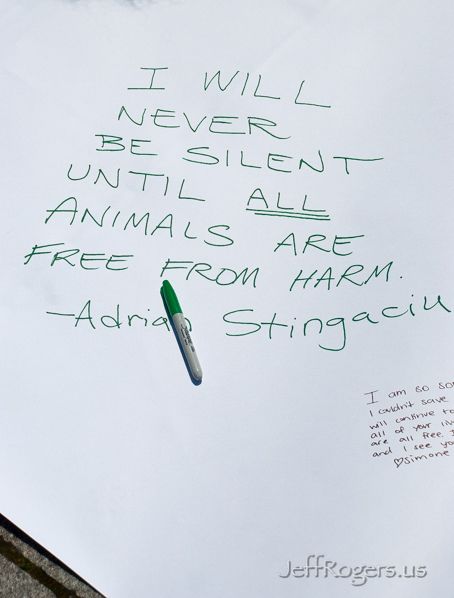 I WILL
NEVER
BE SILENT
UNTIL ALL
ANIMALS ARE
FREE FROM HARM.
-Adrian Stingaciu
I am so
I couldn't save
will continue to
all of your
are all free.
and I see
♡Simone
JeffRogers.us